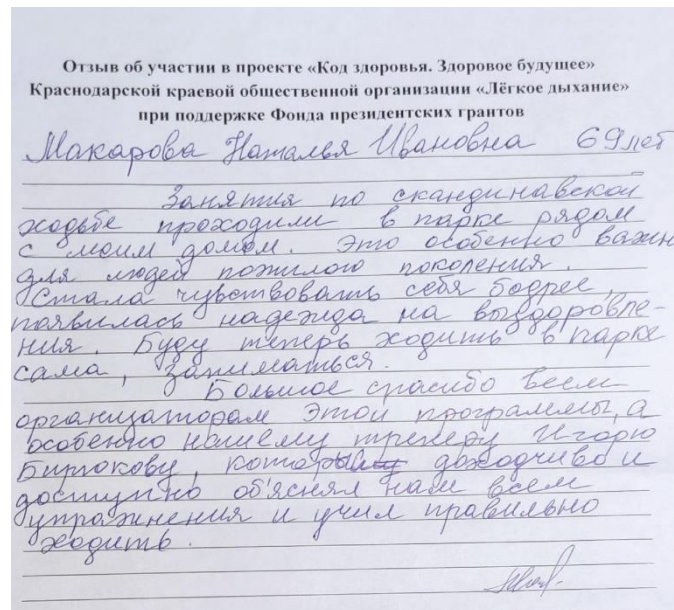 Отзыв об участии в проекте «Код здоровья. Здоровое будущее»
Краснодарской краевой общественной организации «Лёгкое дыхание»
при поддержке Фонда президентских грантов
Макарова Наталья Ивановна 69 лет
Занятия по скандинавской
ходьбе проходили в парке рядом
с моим домом. Это особенно важн
для людей пожилого поколения.
Стала чувствовать себя бодрее,
появилась надежда на выздоровле-
ния. Буду теперь ходить в парке
сама, заниматься.
Большое спасибо всем
организаторам этой программы, а
особенно нашему тренеру Игорю
Бирюкову, который доходчиво и
доступно об'яснял нам всем
упражнения и учил правильно
ходить.